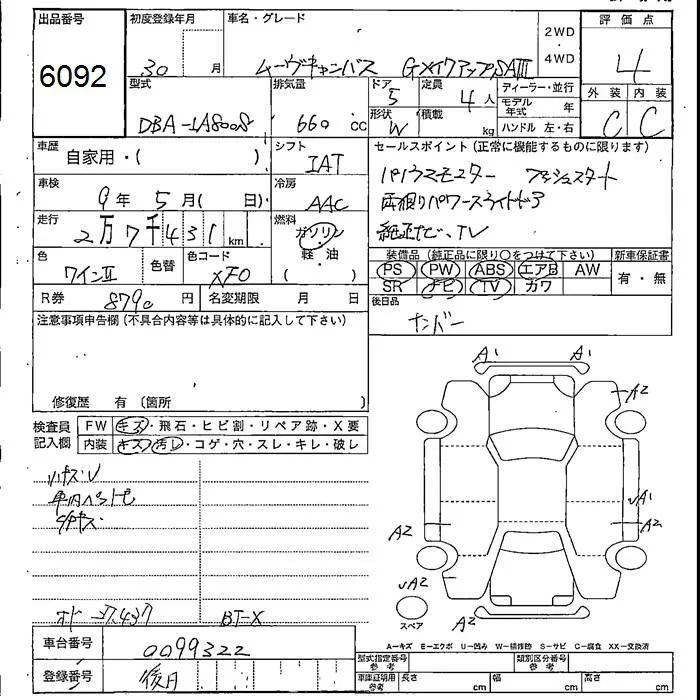 出品番号
6092
初度登録年月
30 月
車名・グレード
ムーヴキャンバス GメイクアップSAⅢ
2WD
・
4WD
評価点
4
外装 内装
C C
型式
DBA-LA800S
排気量
660 cc
ドア
5
形状
W
定員
4人
積載
kg
ディーラー・並行
モデル年式 年
ハンドル 左・右
車歴
自家用・( )
シフト
IAT
車検
9年5月( 日)
冷房
AAC
走行
2万7千431km
燃料
ガソリン
・
軽・油
色
ワインⅡ
色替
色コード
XFO
R券 円
名変期限 月 日
セールスポイント (正常に機能するものに限ります)
パノラマモニター プッシュスタート
両側パワースライドドア
純正ナビ、TV
装備品 (純正品に限り○をつけて下さい)
PS PW ABS エアB AW
SR ナビ TV カワ
新車保証書
有・無
後日品
ナンバー
注意事項申告欄 (不具合内容等は具体的に記入して下さい)
修復歴 有 (箇所 )
検査員
記入欄
FW キズ・飛石・ヒビ割・リペア跡・X要
内装 キズ・汚レ・コゲ・穴・スレ・キレ・破レ
A1 A1
A2
A1
A2 A2
A2
A2
スペア
A-キズ E-エクボ U-凹み W-補修跡 S-サビ C-腐食 XX-交換済
車台番号
0099322
登録番号
後月
型式指定番号
参考
類別区分番号
参考
車庫証明用
参考
長さ cm
幅 cm
高さ cm